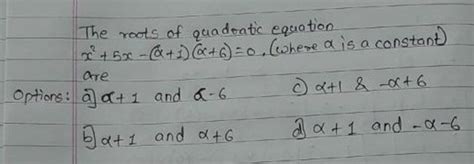 The roots of quadratic equation
x² + 5x - (α+1)(α+6) = 0, (where α is a constant)
are
Options: a) α+1 and α-6 c) α+1 & -α+6
b) α+1 and α+6 d) α+1 and -α-6